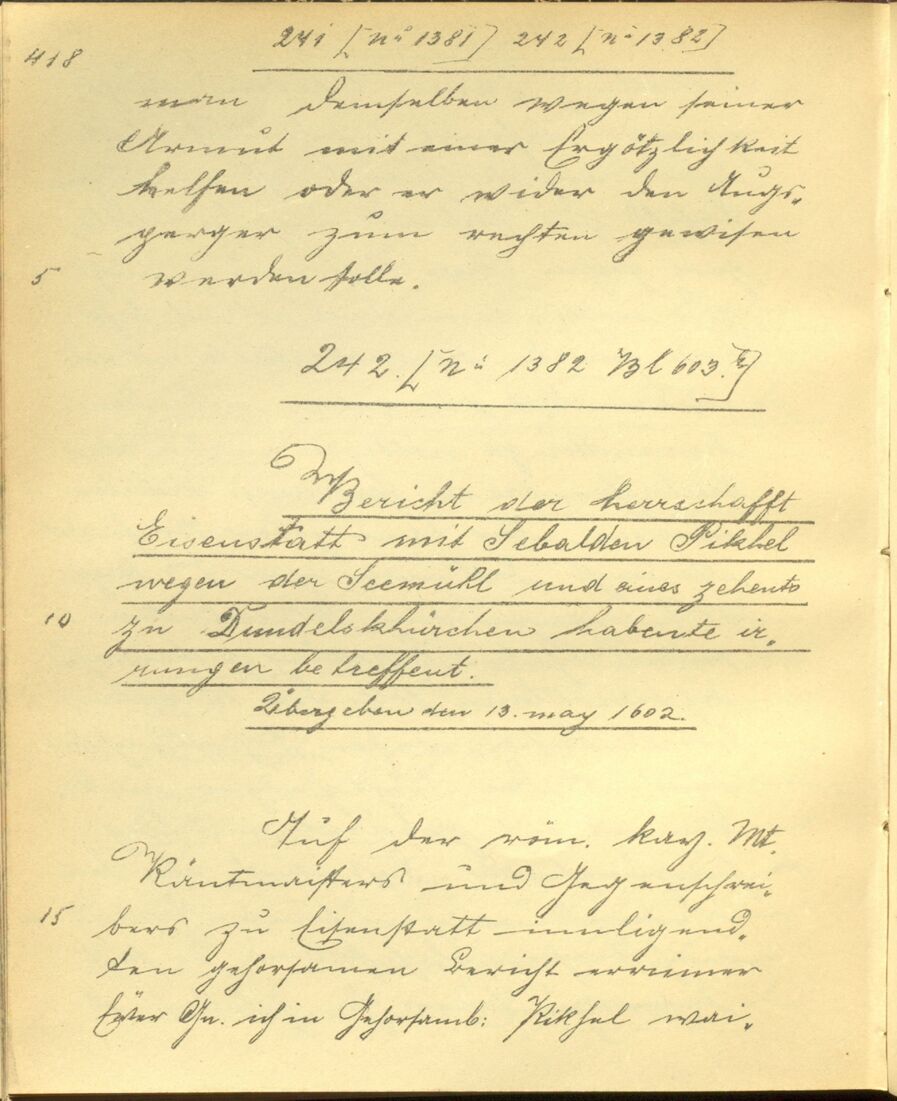 418
241 [No 1381] 242 [No 1382]
man demselben wegen seiner
Armut mit einer Ergötzlichkeit
helfen oder er wider den Augs-
perger zum rechten gewisen
5 werden solle.
242. [No 1382 Bl 603.]
Bericht der herrschafft
Eisenstatt mit Sebalden Pikhel
wegen der Seemühl und eines zehents
10 zu Dundelskhürchen habente ir-
rungen betreffent.
Übergeben den 13. may 1602.
Auf der röm. kay. Mt.
Räntmaisters und Gegenschrei-
15 bers zu Eisenstatt innligend-
ten gehorsamen Bericht errinner
Euer Gn. ich in Gehorsamb: Pikhel wai-